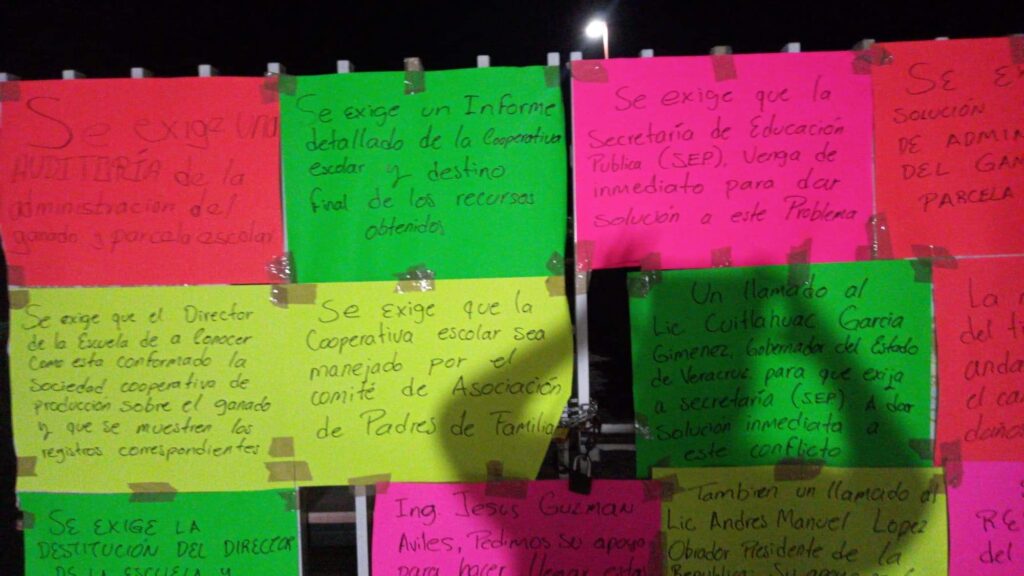 Se exige una
AUDITORÍA de la
administración del
ganado y parcela escolar
Se exige un Informe
detallado de la Cooperativa
escolar y destino
final de los recursos
obtenidos
Se exige que la
Secretaría de Educación
Pública (SEP), Venga de
inmediato para dar
solución a este Problema
SE EX
SOLUCIÓN
DE ADMIN
DEL GAN
PARCELA
Se exige que el Director
de la Escuela de a Conocer
Como esta conformado la
Sociedad cooperativa de
producción sobre el ganado
y que se muestren los
registros correspondientes
Se exige que la
Cooperativa escolar sea
manejado por el
comité de Asociación
de Padres de Familia
Un llamado al
Lic Cuitlahuac Garcia
Gimenez, Gobernador del Estado
de Veracruz para que exija
a secretaría (SEP) A dar
solución inmediata a
este conflicto
La
del ti
anda
el ca
daños
SE EXIGE LA
DESTITUCIÓN DEL DIRECTOR
DE LA ESCUELA Y
Ing. Jesus Guzman
Aviles, Pedimos su apoyo
para hacer llegar esta
Tambien un llamado al
Lic Andres Manuel Lopez
Obrador Presidente de la
Republica: Su apoyo
del